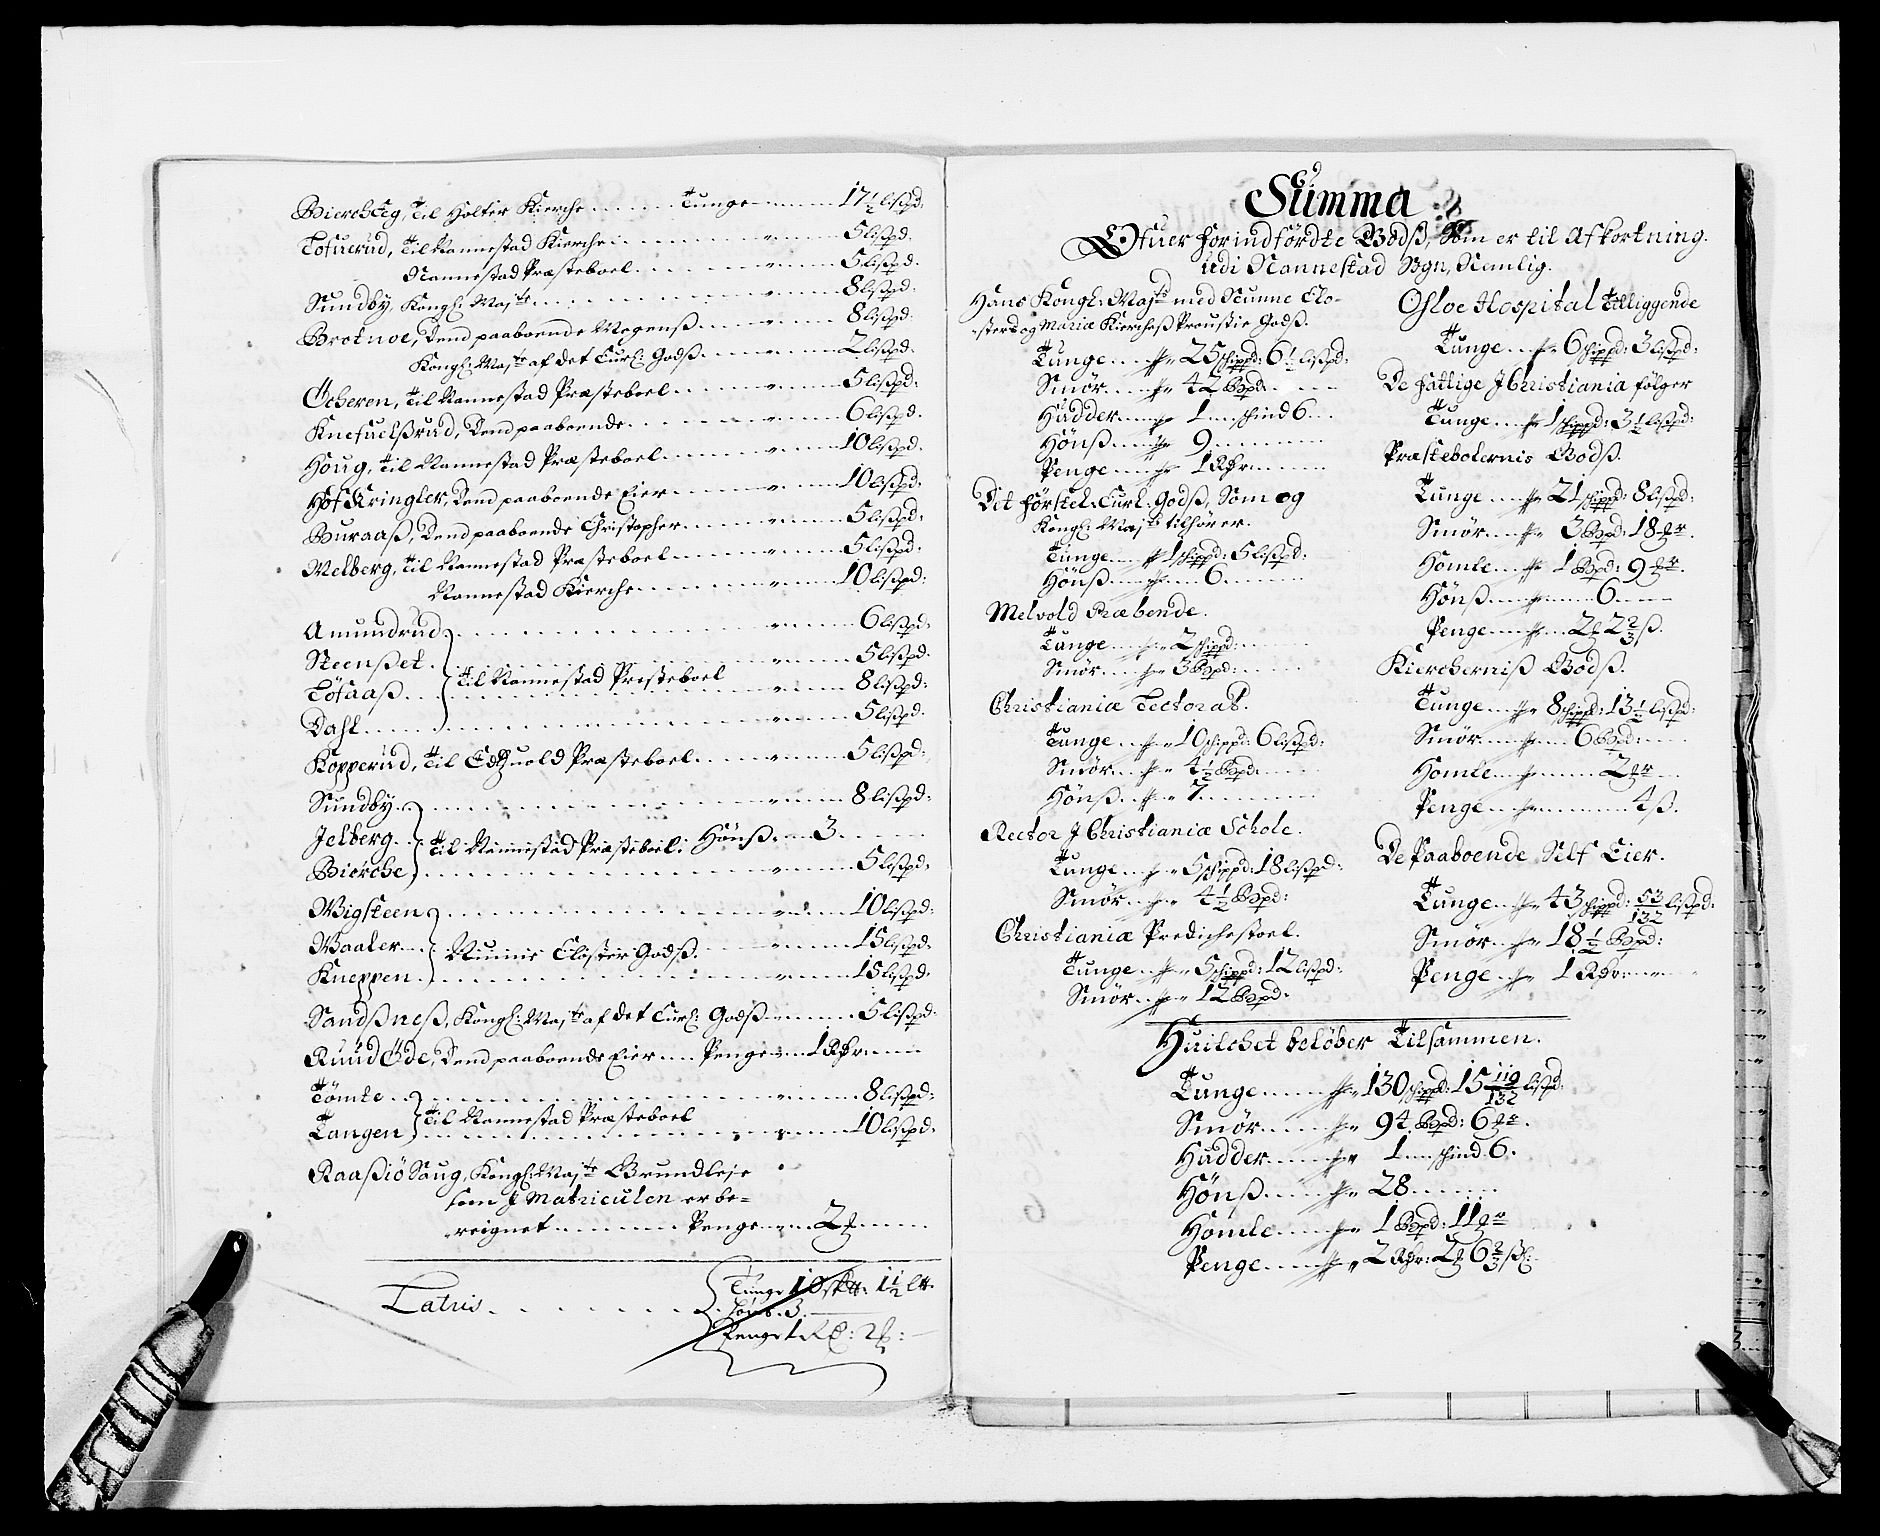 Bierchteg, til Holter Kierche ...... Tunge ...... 17½ lispd:
Lofuerud, til Nannestad Kierche ...... 5 lispd.
Nannestad Præsteboel ...... 5 lispd.
Sundby, Kongl: Maj:ts ...... 8 lispd:
Brotnoe, Dend paaboende Mogenß ...... 8 lispd:
Kongl: Maj:ts af det Curl: Godß ...... 2 lispd.
Öcheren, til Nannestad Præsteboel ...... 5 lispd:
Knefuelßrud, Dend paaboende ...... 6 lispd.
Houg, til Nannestad Præsteboel ...... 10 lispd.
Hof Kringler, Dend paaboende Eier ...... 10 lispd:
Buraaß, Dend paaboende Christopher ...... 5 lispd:
Melberg, til Nannestad Præsteboel ...... 5 lispd:
Nannestad Kierche ...... 10 lispd:
Amundrud ...... 6 lispd:
Steenßet ...... 5 lispd.
til Nannestad Presteboel
Löfaaß ...... 8 lispd:
Dahl ...... 5 lispd.
Kopperud, til Edtzuold Præsteboel ...... 5 lispd:
Sundby ...... 8 lispd:
Jelberg til Nannestad Præsteboel: Hönß ... 3 ......
Bierche ...... 5 lispd:
Wigsteen ...... 10 lispd:
Waaler Nunne Closter Godß. ...... 15 lispd:
Kneppen ...... 15 lispd:
Sandßneß, Kongl: Maj:ts af det Curl: Godß ...... 5 lispd:
Ruud Öde, Dend paaboende Eier ... Penge ... 1 Rdr ......
Tömte ...... 8 lispd:
til Nannestad Præsteboel
Tangen ...... 10 lispd:
Raaßiö Saug, Kongl: Maj:ts Grundleje
som J Matriculen er be=
reignet ...... Penge ... 2 ......
Latus ......
Tunge 10 sk℔: 1½ l℔.
Hönß. 3.
Penge 1 Rd: 2
Summa
Ofuer forindfördte Godß, Som er til Afkortning.
udi Nannestad Sogn, Nemlig.
Hans Kongl: Maj:ts med Nunne Clo-
sters og Mariæ Kircheß Proustie Godß.
Tunge ... 25 schippd: 6½ lispd:
Smör ... 42 Bpd.
Hudder ... 1 ... schind 6
Hönß ... 9
Penge ... 1 Rdr
Dit förstel: Curl: Godß, Som og
Kongl: Maj:ts tilhörer.
Tunge ... 1 schippd: 5 lispd:
Hönß ... 6
Melvold Præbende.
Tunge ... 2 schippd:
Smör ... 3 Bpd:
Christianiæ Lectorat.
Tunge ... 10 schippd: 6 lispd:
Smör ... 4½ Bpd.
Hönß ... 7
Rector J Christianiæ Schole.
Tunge ... 5 schippd: 18 lispd:
Smör ... 4½ Bpd:
Christianiæ Predichestoel.
Tunge ... 5 schippd: 12 lispd:
Smör ... 12 Bpd:
Osloe Hospital tilliggende
Tunge ... 6 schippd: 3 lispd:
De fattige J Christiania fölger
Tunge ... 1 schippd: 3½ lispd:
Præstebolernis Godß.
Tunge ... 21 schippd: 8 lispd:
Smör ... 3 Bpd: 18 mr.
Homle ... 1 Bpd: 9 mr.
Hönß ... 6
Penge ... 2 2⅔ ß.
Kircherniß Godß.
Tunge ... 8 schippd: 13½ lispd:
Smör ... 6 Bpd:
Homle ... 2 mr
Penge ... 4 ß.
De Paaboende Self Eier.
Tunge ... 43 schippd: 53/132 lispd:
Smör ... 18½ Bpd:
Penge ... 1 Rdr
Huilchet belöber Tilsammen.
Tunge ... 130 schippd: 15 119/132 lispd:
Smör ... 94 Bpd: 6 mr.
Hudder ... 1 ... schind 6.
Hönß ... 28
Homle ... 1 Bpd: 11 mr
Penge ... 2 Rdr: 2 6⅔ ßl: